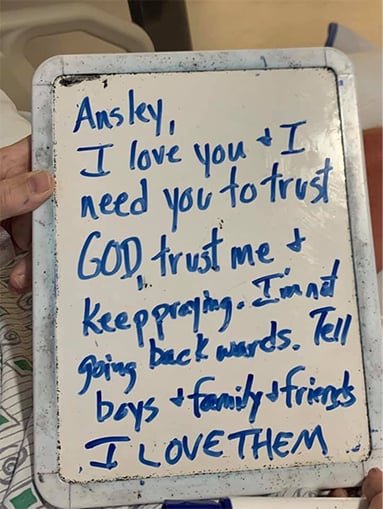 Ansley,
I love you + I
need you to trust
GOD, trust me +
Keep praying. I'm not
going backwards. Tell
boys + family + friends
I LOVE THEM